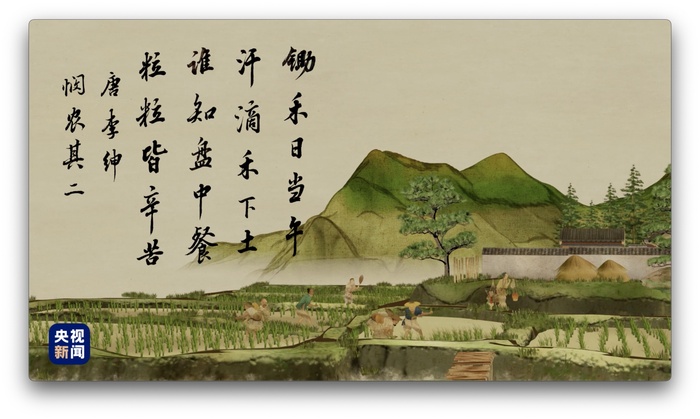 锄禾日当午
汗滴禾下土
谁知盘中餐
粒粒皆辛苦
唐李绅
悯农其二
央视
新闻